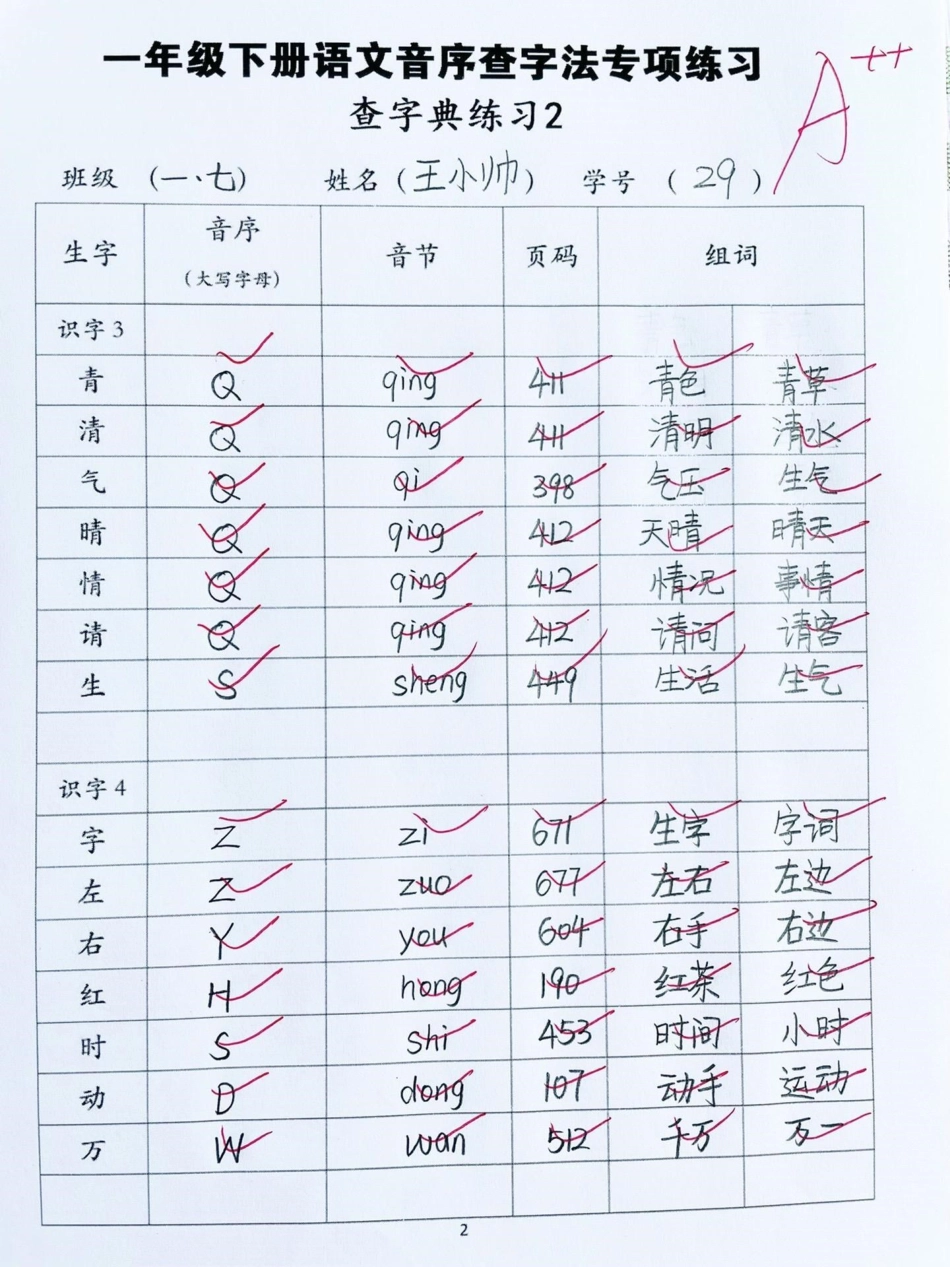 一年级下册语文音序查字法专项练习
A++
查字典练习2
班级 (一.七) 姓名 (王小帅) 学号 (29)
生字 音序 (大写字母) 音节 页码 组词
识字3
青 Q qing 411 青色 青草
清 Q qing 411 清明 清水
气 Q qi 398 气压 生气
晴 Q qing 412 天晴 晴天
情 Q qing 412 情况 事情
请 Q qing 412 请问 请客
生 S sheng 449 生活 生气
识字4
字 Z zi 671 生字 字词
左 Z zuo 677 左右 左边
右 Y you 604 右手 右边
红 H hong 190 红茶 红色
时 S shi 453 时间 小时
动 D dong 107 动手 运动
万 W wan 512 千万 万一
2